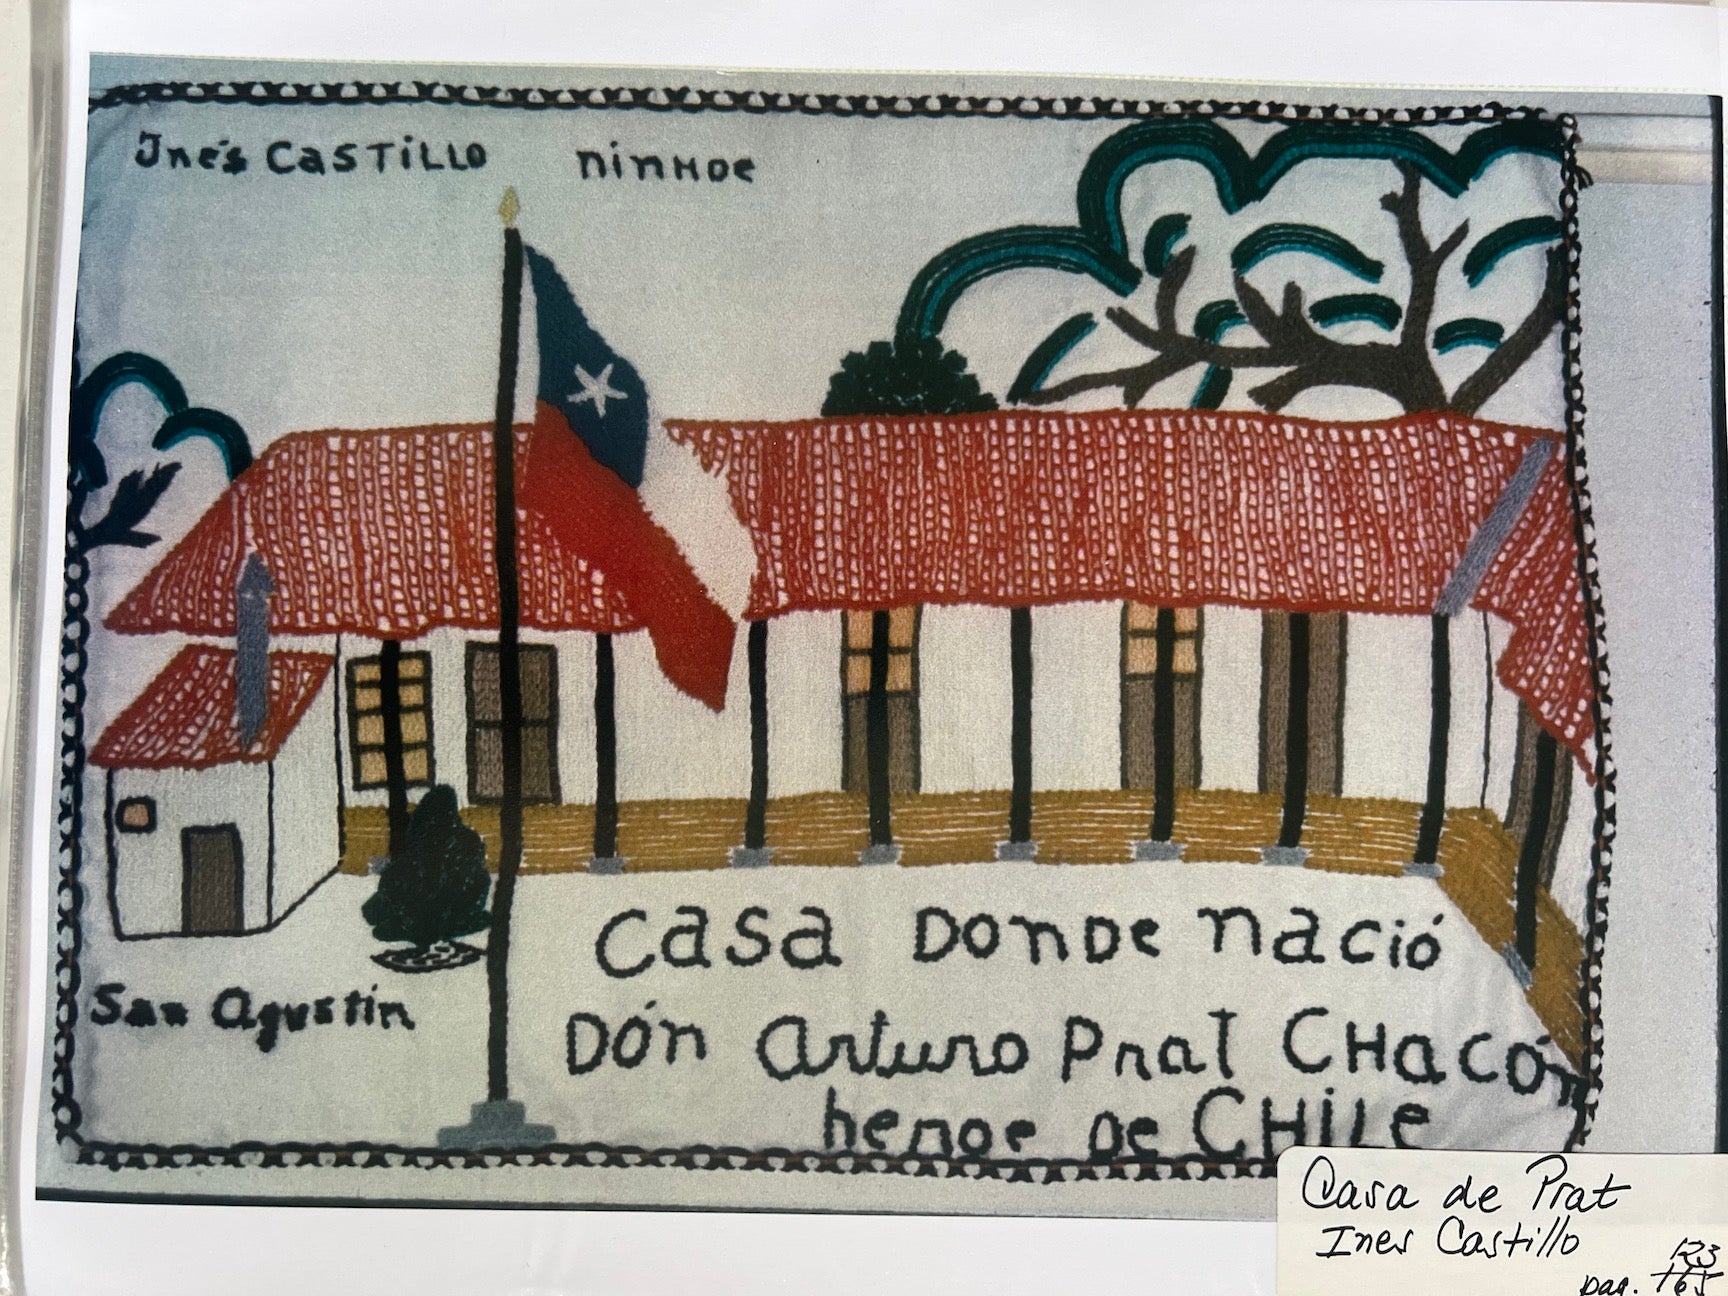 Inés CaSTiLLO ninHOe
San Agustin
Casa Donde nació
Dón Arturo Prat CHacón
heroe de CHiLe
Casa de Prat
Ines Castillo
123
pag. 165